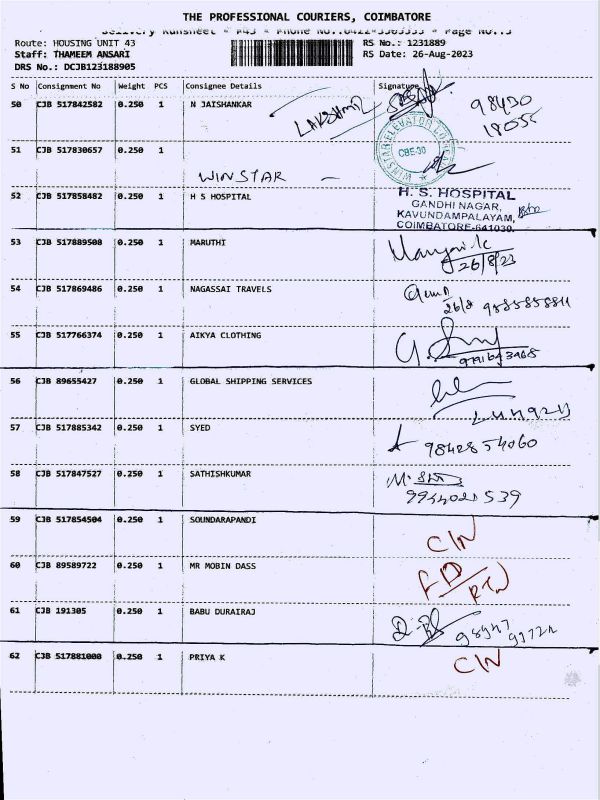 THE PROFESSIONAL COURIERS, COIMBATORE
Delivery Runsheet * P43 * Phone No.:0422-3505555 * Page No.:5
Route: HOUSING UNIT 43 RS No.: 1231889
Staff: THAMEEM ANSARI RS Date: 26-Aug-2023
DRS No.: DCJB123188905
S No Consignment No Weight PCS Consignee Details Signature
50 CJB 517842582 0.250 1 N JAISHANKAR LAKSHMI 98430
18055
51 CJB 517830657 0.250 1 WINSTAR - WINSTAR ELEVATOR CBE-30
52 CJB 517858482 0.250 1 H S HOSPITAL H. S. HOSPITAL
GANDHI NAGAR,
KAVUNDAMPALAYAM,
COIMBATORE-641030.
53 CJB 517889508 0.250 1 MARUTHI
26/8/23
54 CJB 517869486 0.250 1 NAGASSAI TRAVELS
26/8
55 CJB 517766374 0.250 1 AIKYA CLOTHING
56 CJB 89655427 0.250 1 GLOBAL SHIPPING SERVICES
57 CJB 517885342 0.250 1 SYED
9842854060
58 CJB 517847527 0.250 1 SATHISHKUMAR
59 CJB 517854504 0.250 1 SOUNDARAPANDI
CIN
60 CJB 89589722 0.250 1 MR MOBIN DASS
61 CJB 191305 0.250 1 BABU DURAIRAJ
62 CJB 517881000 0.250 1 PRIYA K CIN